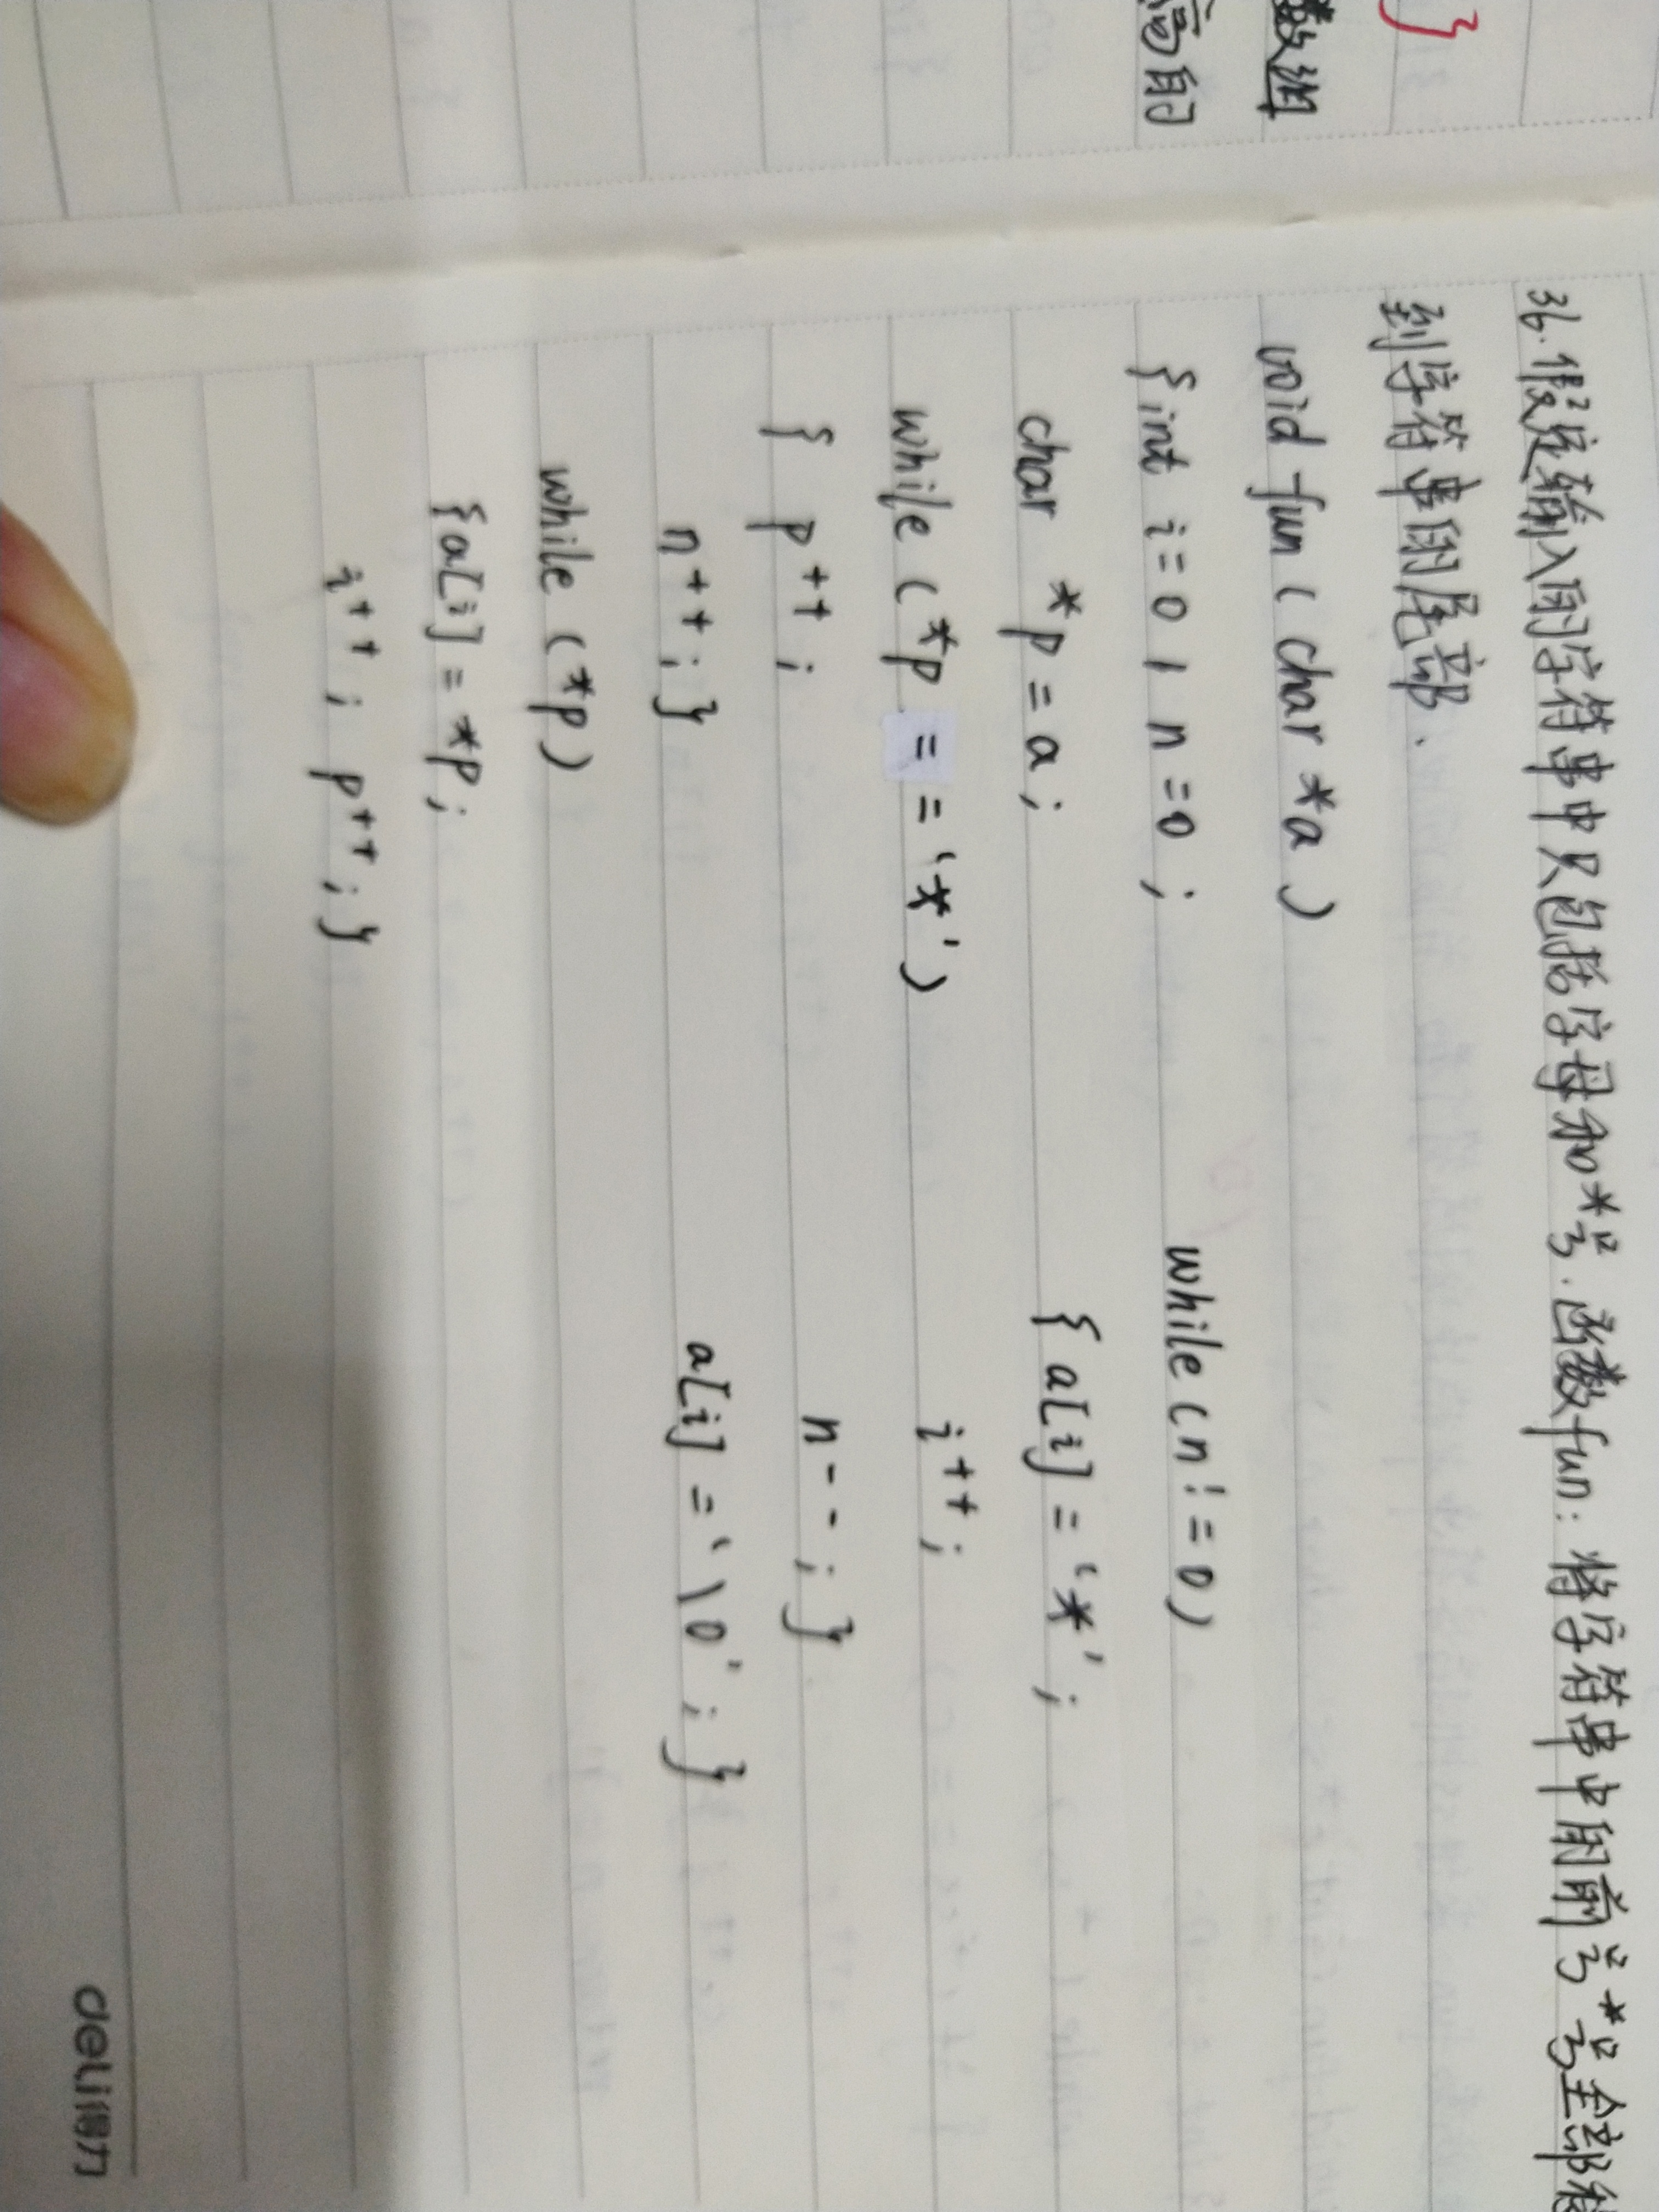 }
数组
高的
36.假定输入的字符串中只包括字母和*号.函数fun:将字符串中的前导*号全部移
到字符串的尾部.
void fun(char *a)
{int i=0,n=0;
char *p=a;
while(*p=='*')
{ p++;
n++;}
while(*p)
{a[i]=*p;
i++;p++;}
while(n!=0)
{a[i]='*';
i++;
n--;}
a[i]='\0';}
deli得力